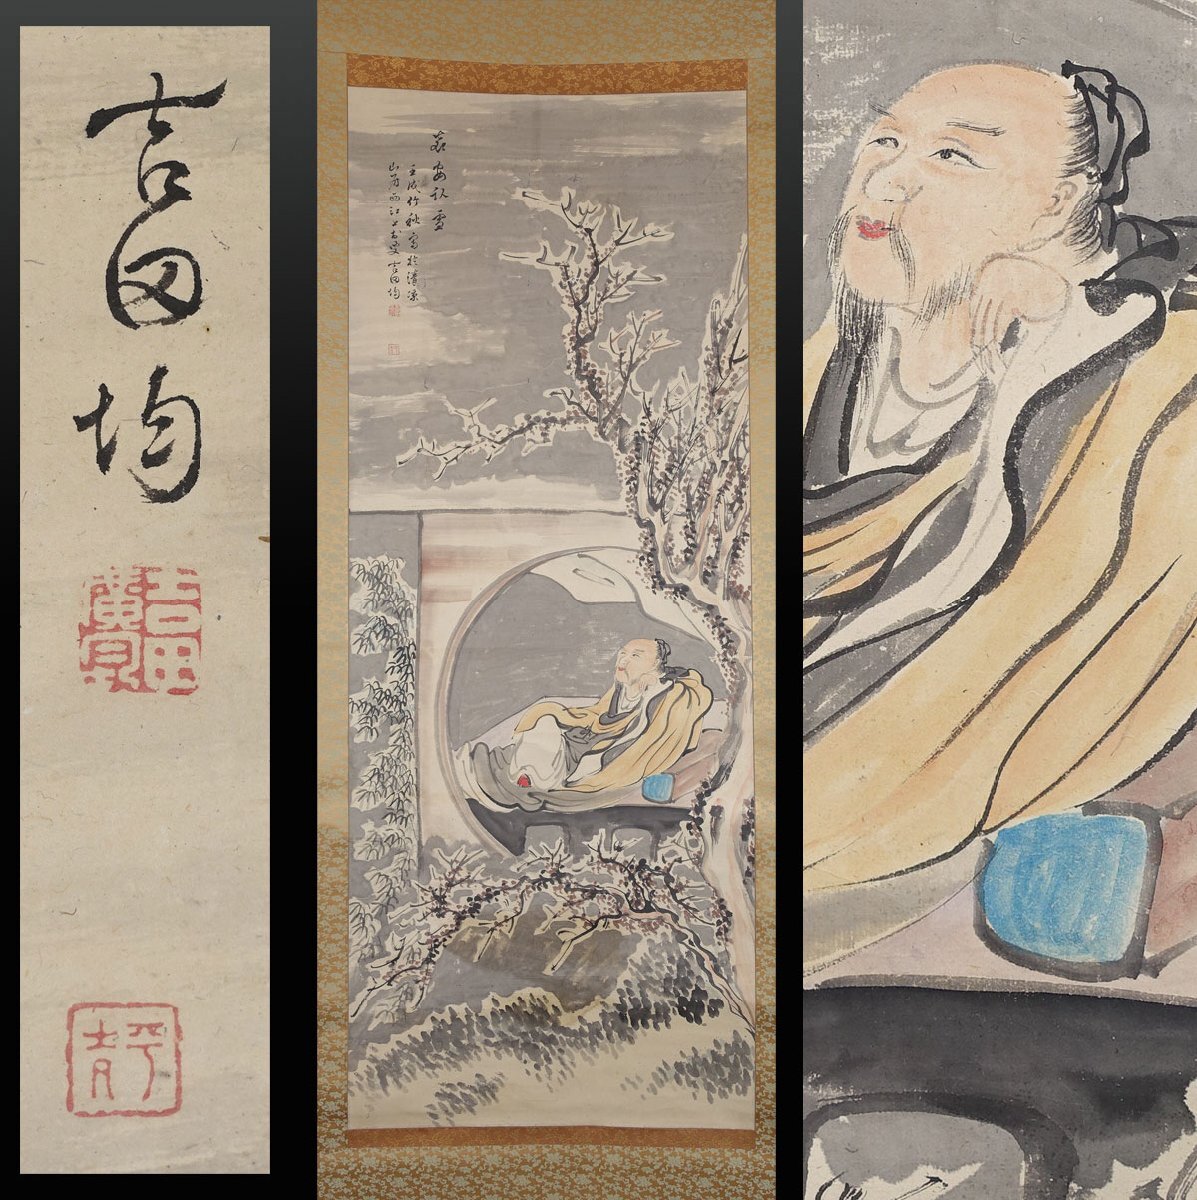 吉田均
吉田
袁安臥雪
壬戌竹秋寫於清涼
山 西江 吉田均